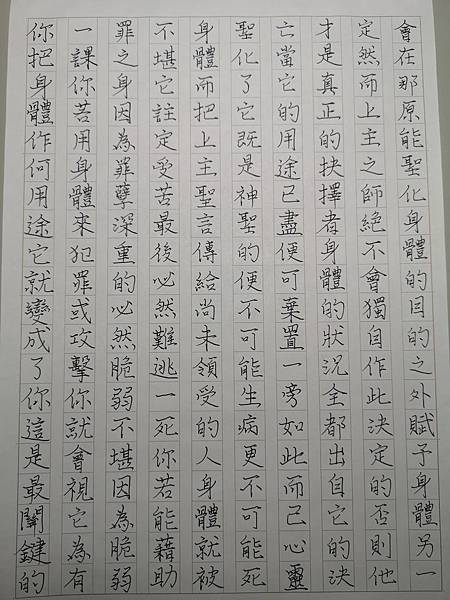 你把身體作何用途它就變成了你這是最關鍵的
一課你若用身體來犯罪或攻擊你就會視它為有
罪之身因為罪孽深重的必然脆弱不堪因為脆弱
不堪它註定受苦最後必然難逃一死你若能藉助
身體而把上主聖言傳給尚未領受的人身體就被
聖化了它既是神聖的便不可能生病更不可能死
亡當它的用途已盡便可棄置一旁如此而己心靈
才是真正的抉擇者身體的狀況全都出自它的決
定然而上主之師絕不會獨自作此決定的否則他
會在那原能聖化身體的目的之外賦予身體另一